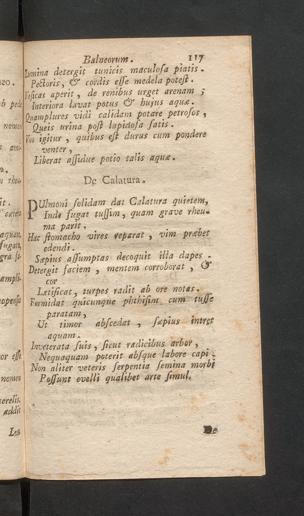 Balneorum. 117
Lumina detergit tunicis maculosa piatis.
Pectoris, & cordis esse medela potest.
Vesicas aperit, de renibus urget arenam;
Interiora lavat potus & hujus aquæ.
Quamplures vidi calidam potare petrosos,
Queis urina post lapidosa satis.
Vos igitur, quibus est durus cum pondere
venter,
Liberat assidue potio talis aquæ.
De Calatura.
PUlmoni solidam dat Calatura quietem,
Inde fugat tussim, quam grave rheu-
ma parit.
Hæc stomacho vires reparat, vim præbet
edendi.
Sæpius assumptas decoquit illa dapes.
Detergit faciem, mentem corroborat, &
cor
Lætificat, turpes radit ab ore notas.
Formidat quicunque phthisim cum tusse
paratam,
Ut timor abscedat, sæpius intret
aquam.
Inveterata suis, sicut radicibus arbor,
Nequaquam poterit absque labore capi.
Non aliter veteris serpentia semina morbi
Possunt evelli qualibet arte simul.
De